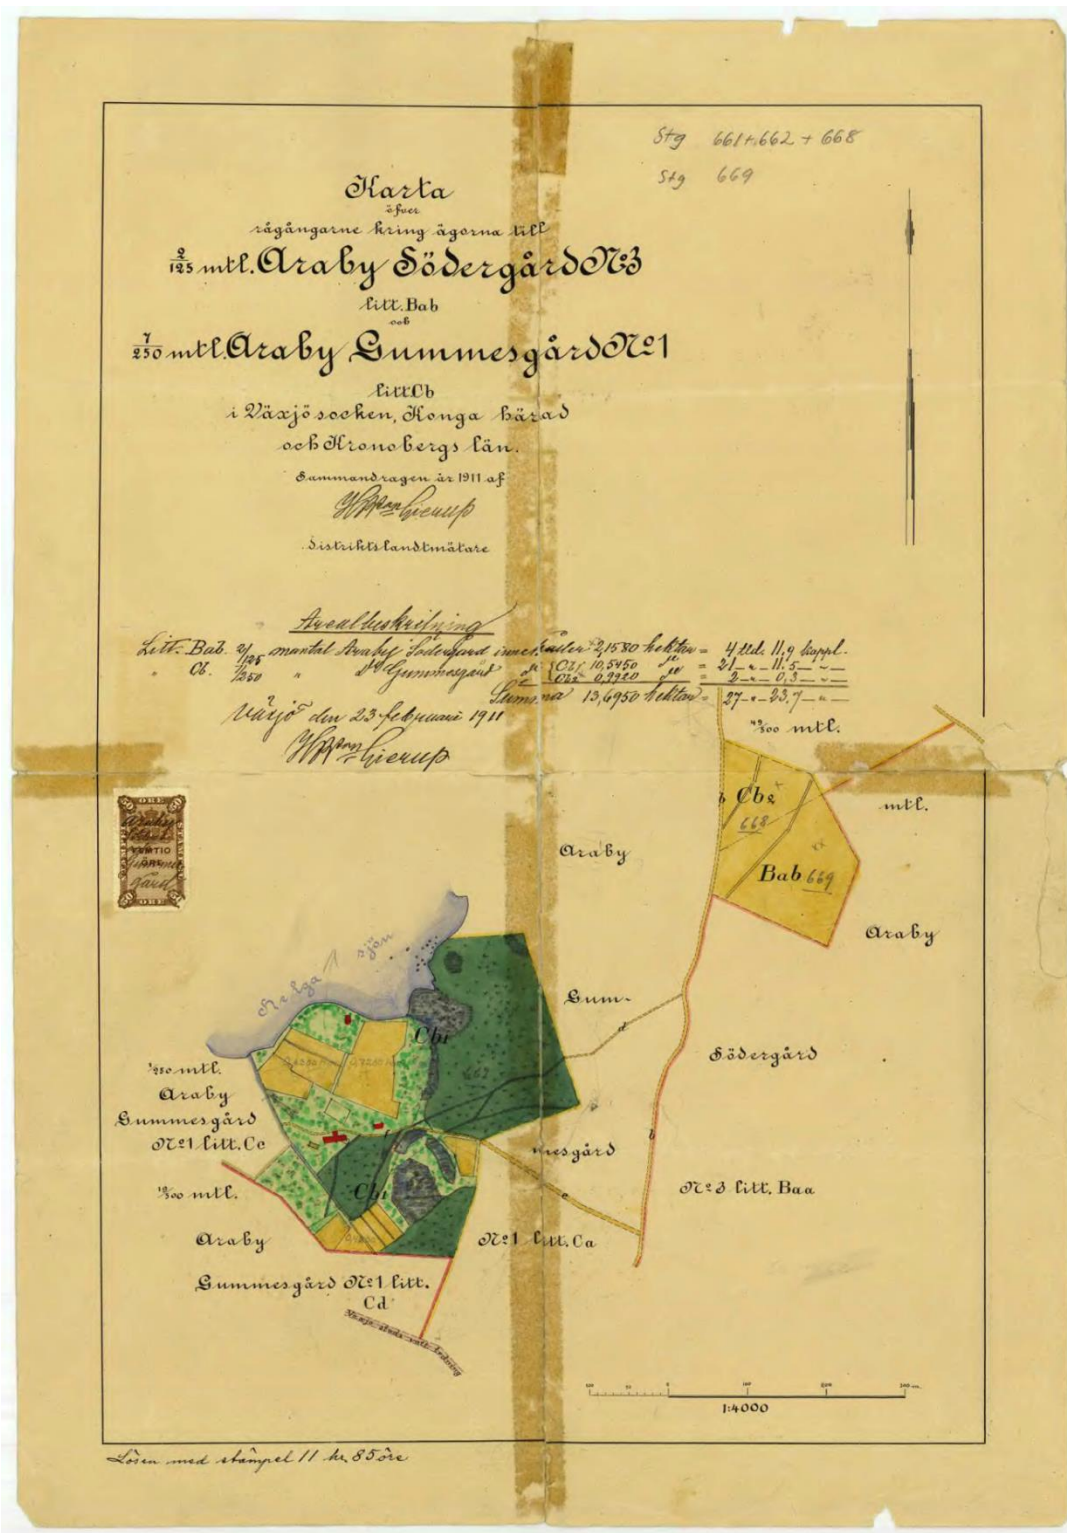 Stg 661+662+668
Stg 669
Karta
öfver
rågångarne kring ägorna till
2/125 mtl. Araby Södergård No3
litt. Bab
och
7/250 mtl. Araby Gummesgård No1
litt Cb
i Växjö socken, Konga härad
och Kronobergs län.
Sammandragen år 1911 af
distriktslandtmätare
Arealbeskrifning
Litt. Bab. 2/125 mantal Araby Södergård innehåller 2,1580 hektar = 4 tld. 11,9 kappl.
" Cb. 7/250 " Do Gummesgård do Cb1 10,5450 do = 21 - " - 11,5 - " -
Cb2 0,9920 do = 2 - " - 0,3 - " -
Summa 13,6950 hektar = 27 - " - 23,7 - " -
Växjö den 23 februari 1911
mtl.
Cb2
668
mtl.
b
Araby
Bab 669
Araby
50 ÖRE 50
FEMTIO
ÖRE
50 ÖRE 50
Helga sjön
Gum-
Cb1
662
d
Södergård
mtl.
Araby
Gummesgård
No1 litt. Cc
b
mesgård
No3 litt. Baa
mtl.
Cb1
c
Araby
No1 litt. Ca
Gummesgård No1 litt.
Cd
100 50 0 100 200 300 m.
1:4000
Lösen med stämpel 11 kr. 85 öre